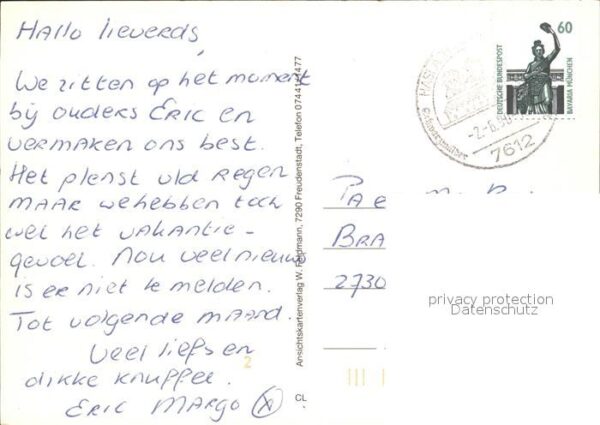 Hallo lieverds,
We zitten op het moment
bij ouders ERIC en
vermaken ons best.
Het plenst v/d regen
MAAR we hebben toch
wel het vakantie-
gevoel. Nou veel nieuws
is er niet te melden.
Tot volgende maand.
Veel liefs en
dikke knuffel.
ERIC MARGO
2
CL
Ansichtskartenverlag W. Feldmann, 7290 Freudenstadt, Telefon 07441/4477
60
DEUTSCHE BUNDESPOST
BAVARIA MÜNCHEN
7612
PA E
BRA
2730
privacy protection
Datenschutz